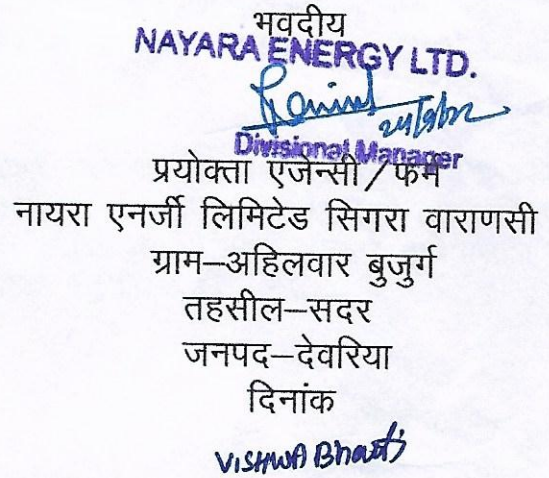 भवदीय
NAYARA ENERGY LTD.
24/9/22
Divisional Manager
प्रयोक्ता एजेन्सी/फर्म
नायरा एनर्जी लिमिटेड सिगरा वाराणसी
ग्राम–अहिलवार बुजुर्ग
तहसील–सदर
जनपद–देवरिया
दिनांक
VISHWA Bharti